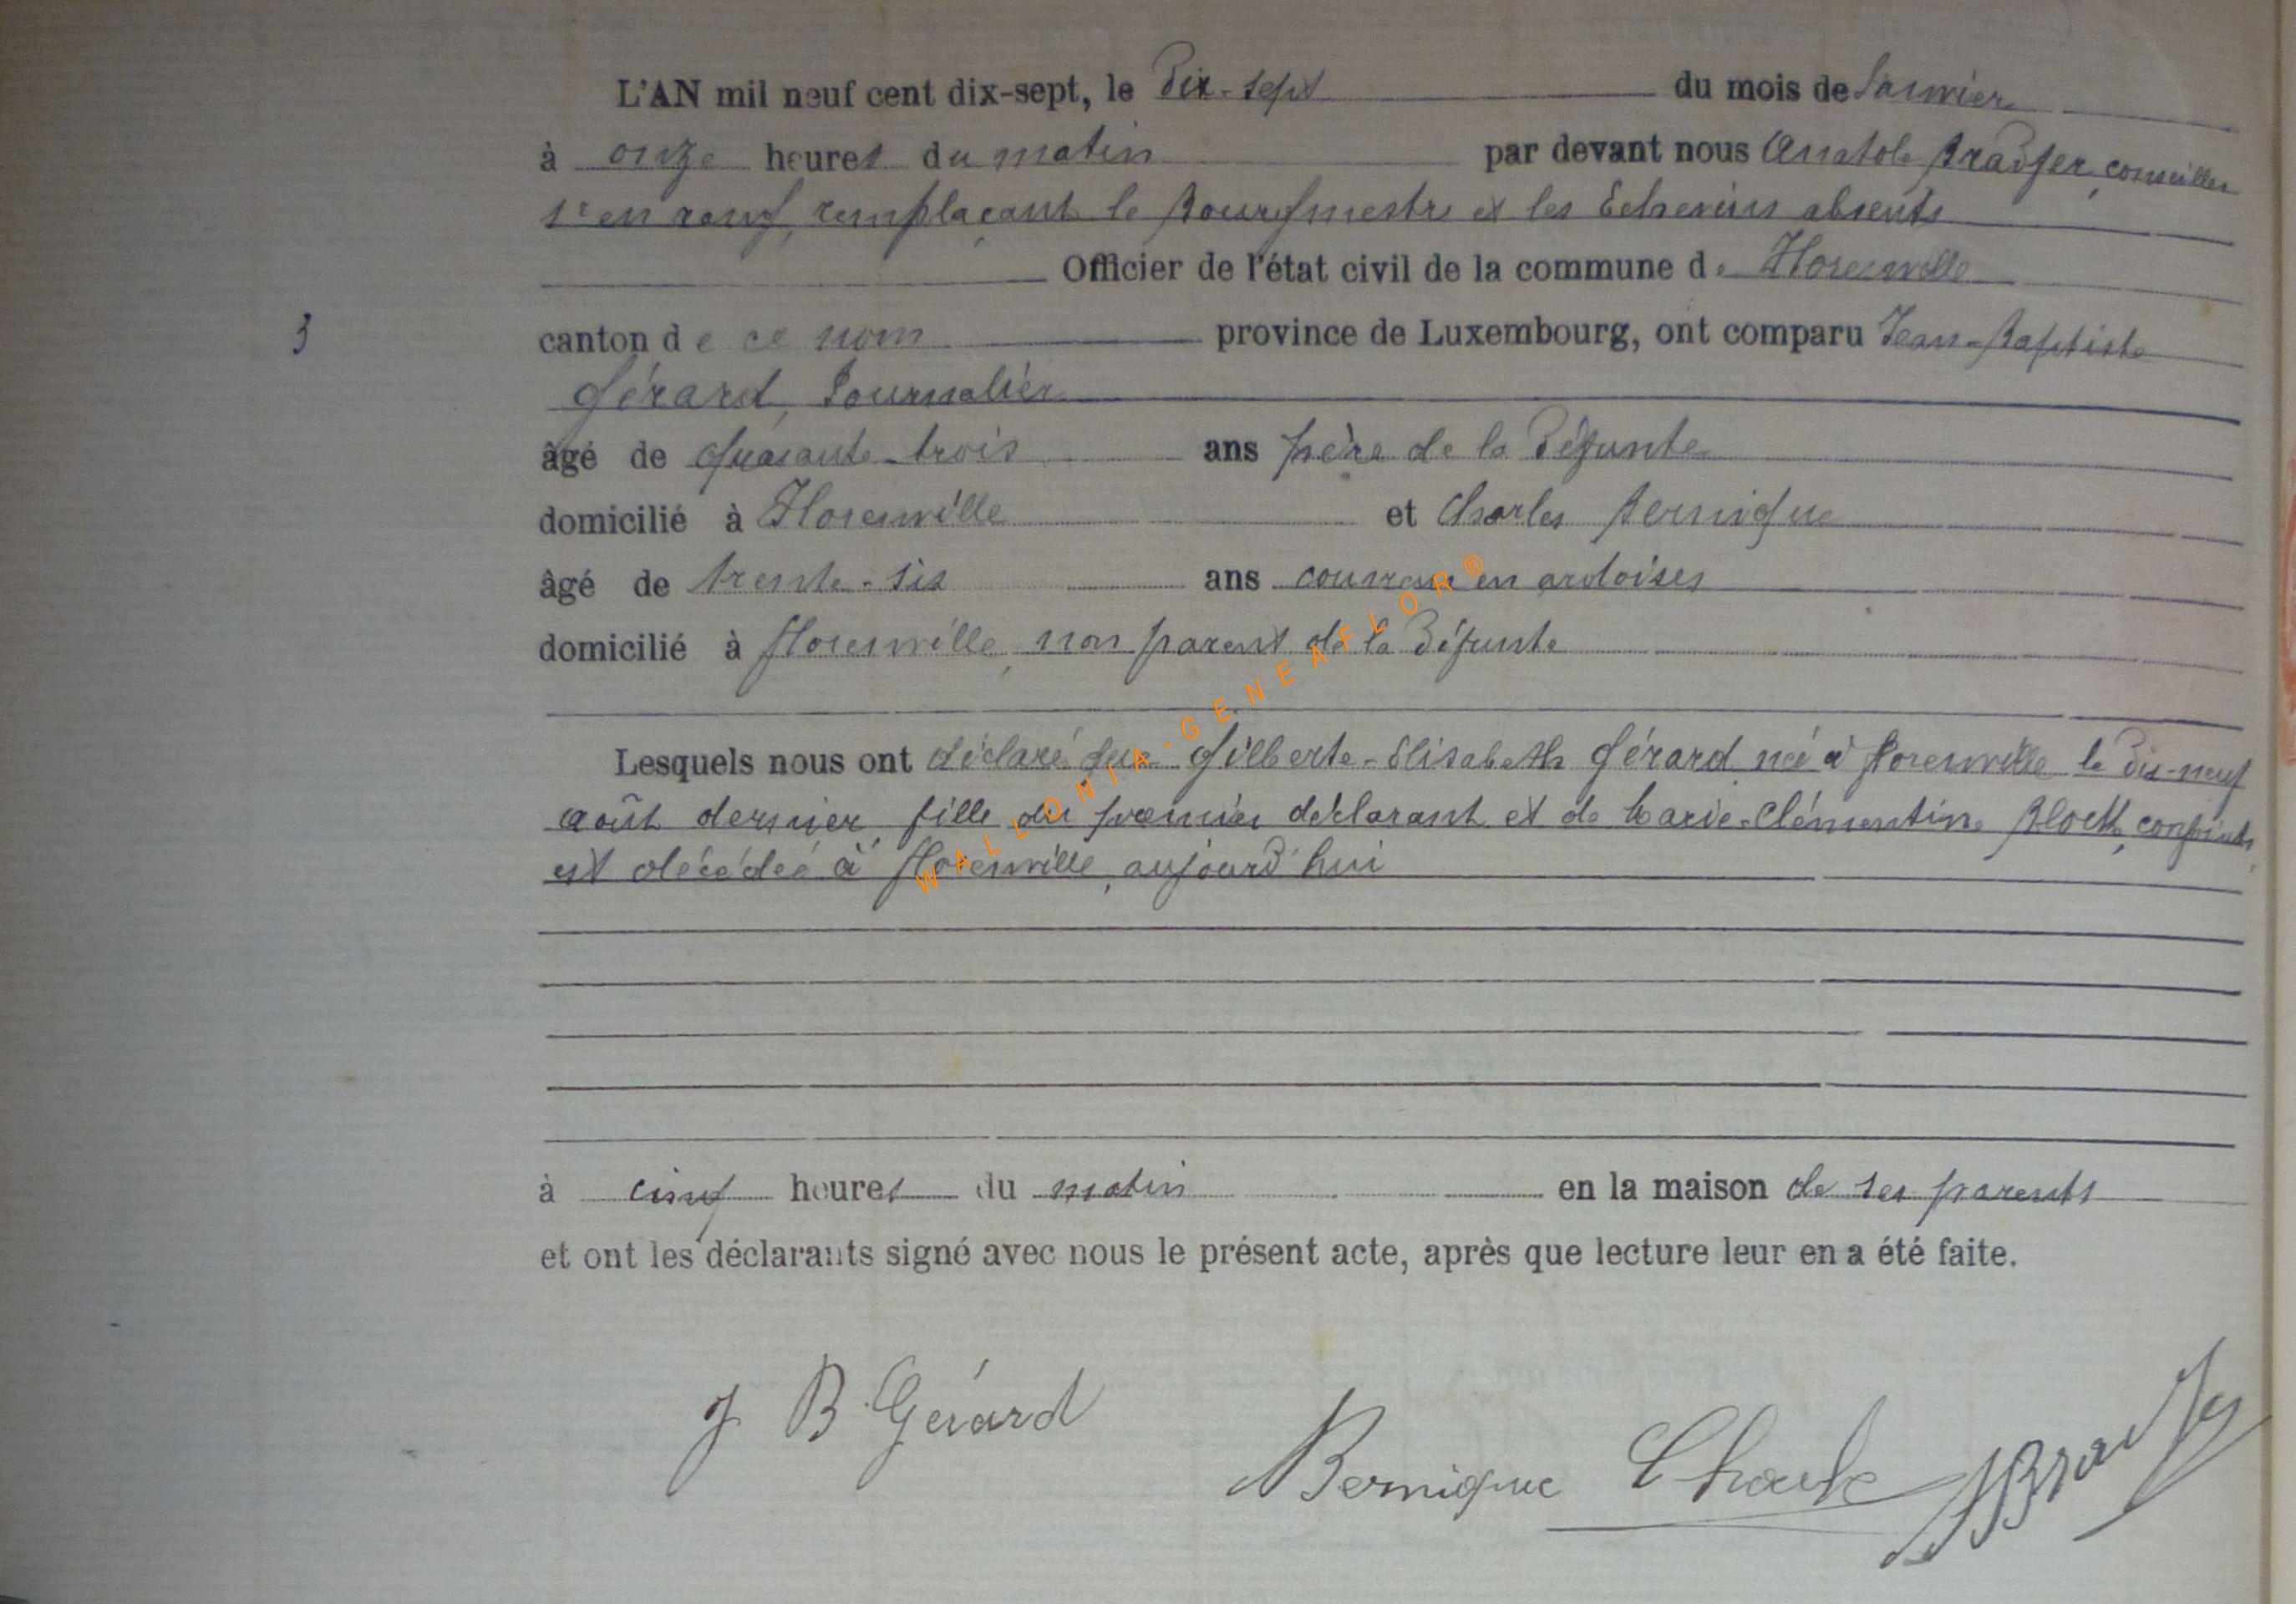 L'AN mil neuf cent dix-sept, le Dix-sept du mois de Janvier
à onze heures du matin par devant nous Anatole Bradfer, conseiller
1er en rang, remplaçant le Bourgmestre et les Echevins absents
Officier de l'état civil de la commune de Florenville
3
canton de ce nom province de Luxembourg, ont comparu Jean-Baptiste
Gérard, Journalier
âgé de quarante-trois ans père de la Défunte
domicilié à Florenville et Charles Bernique
âgé de trente-six ans couvreur en ardoises
domicilié à Florenville, non parent de la Défunte
Lesquels nous ont déclaré que Gilberte-Elisabeth Gérard née à Florenville le Dix-neuf
août dernier, fille du premier déclarant et de Marie-Clémentine Block, conjoints,
est décédée à Florenville, aujourd'hui
à cinq heures du matin en la maison de ses parents
et ont les déclarants signé avec nous le présent acte, après que lecture leur en a été faite.
J B Gérard
Bernique Charle
ABradfer
WALLONIA-GENEAFLOR®